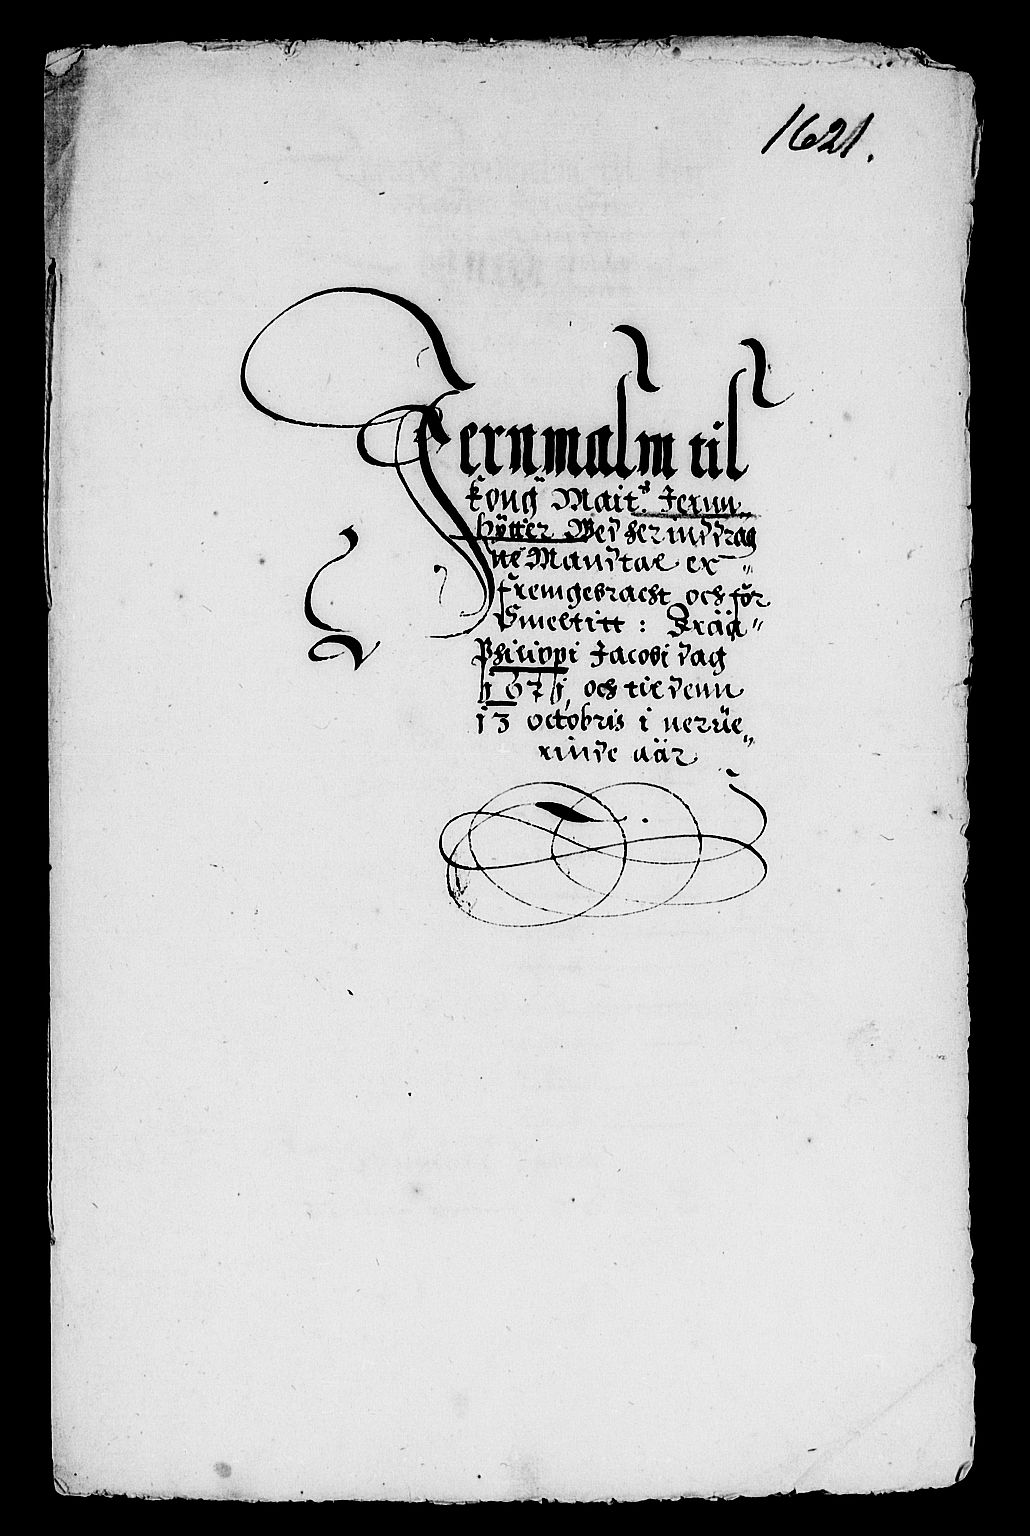 1621.
Jernmalm til
kong Mait: Jernn„
hÿtter Wed herinddrag
ne Mandtal er „
fremgebracht och för
Smeltitt : Fraa„
Philippi Jacobi dag
1621, och til denn
13 octobris i neruë„
rinde aar